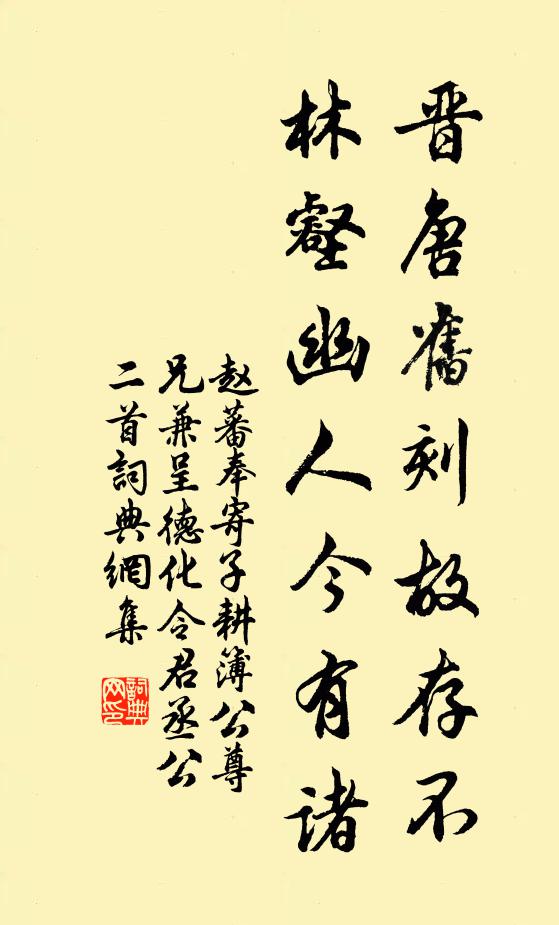 晋唐舊刻故存不
林壑幽人今有諸
赵蕃奉寄子耕簿公尊
兄兼呈德化令君丞公
二首詞典網集
詞典
网印